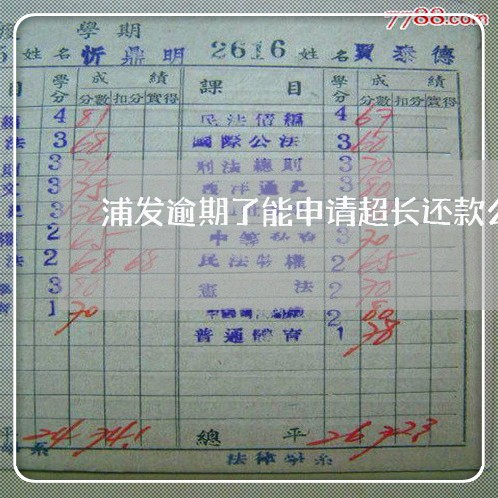 7788.com
學期
姓名 忻鼎明 2616 姓名 賈泰德
目 學分 成績 課目 學分 成績
分數 扣分 實得 分數 扣分 實得
4 81 民法債編 4 67
法 3 68 國際公法 3 60
3 刑法總則 3 70
3 75 西洋通史 3 80
浦发逾期了能申请超长还款
2 65 3 70
法 2 68 68 民法物權 2 65
3 80 憲法 2 70
1 70 2 80
普通體育 1 78
平 24 74.1 總平 26 72.3
系 法律學系